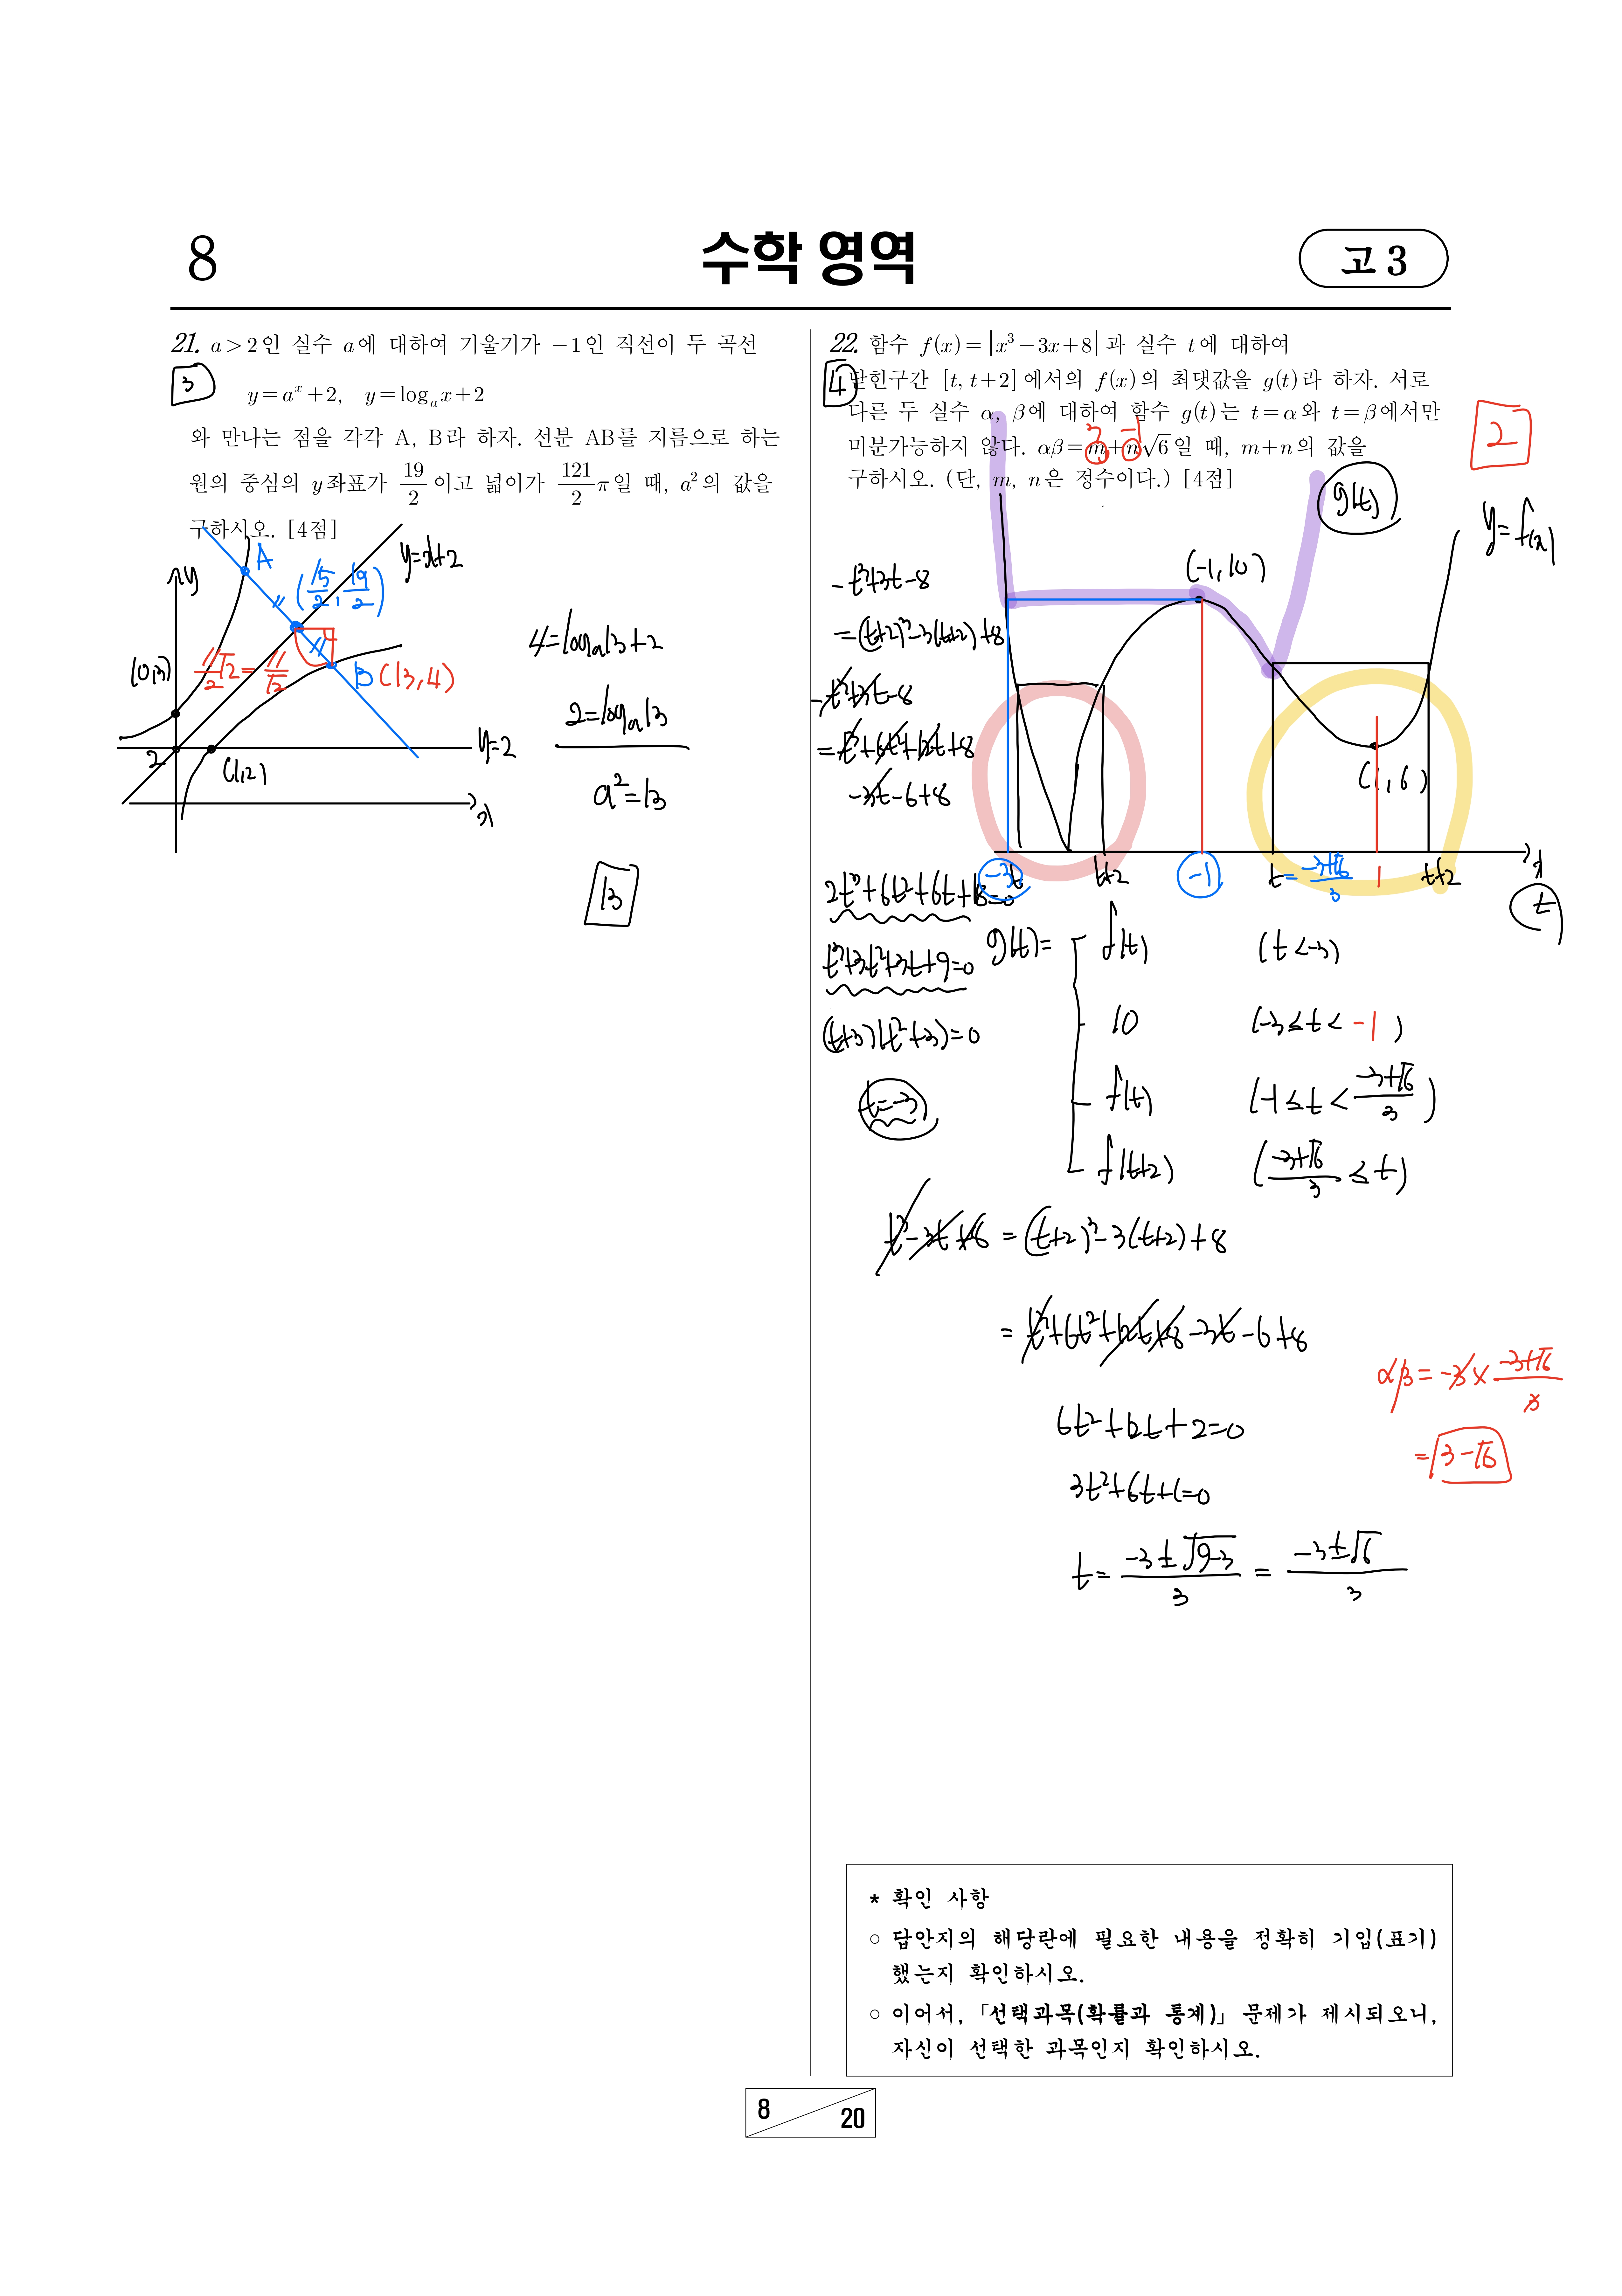 8
수학 영역
고 3
21. a>2인 실수 a에 대하여 기울기가 −1인 직선이 두 곡선
3
y=a^x+2, y=log_a x+2
와 만나는 점을 각각 A, B라 하자. 선분 AB를 지름으로 하는
원의 중심의 y좌표가 19/2 이고 넓이가 121/2 π일 때, a²의 값을
구하시오. [4점]
y
A
y=x+2
(15/2, 19/2)
(0,3)
11/2 √2 = 11/√2
B (13,4)
y=2
2
(1,2)
x
4=log_a 13+2
2=log_a 13
a²=13
13
22. 함수 f(x)=|x³−3x+8|과 실수 t에 대하여
4
닫힌구간 [t, t+2]에서의 f(x)의 최댓값을 g(t)라 하자. 서로
다른 두 실수 α, β에 대하여 함수 g(t)는 t=α와 t=β에서만
미분가능하지 않다. αβ=m+n√6일 때, m+n의 값을
3 -1
2
구하시오. (단, m, n은 정수이다.) [4점]
g(t)
y=f(x)
(-1,10)
(1,6)
-3
t
t+2
-1
t=(-3+√6)/3
1
t+2
x
t
-t³+3t-8
=(t+2)³-3(t+2)+8
-t³+3t-8
=t³+6t²+12t+8
-3t-6+8
2t³+6t²+6t+18=0
t³+3t²+3t+9=0
(t+3)(t²+3)=0
t=-3
g(t)= f(t) (t<-3)
10 (-3≤t<-1)
f(t) (-1≤t<(-3+√6)/3)
f(t+2) ((-3+√6)/3≤t)
t³-3t+8 =(t+2)³-3(t+2)+8
=t³+6t²+12t+8-3t-6+8
6t²+12t+2=0
3t²+6t+1=0
t=(-3±√(9-3))/3 = (-3±√6)/3
αβ=-3×(-3+√6)/3
=3-√6
* 확인 사항
○ 답안지의 해당란에 필요한 내용을 정확히 기입(표기)
했는지 확인하시오.
○ 이어서, 「선택과목(확률과 통계)」 문제가 제시되오니,
자신이 선택한 과목인지 확인하시오.
8
20